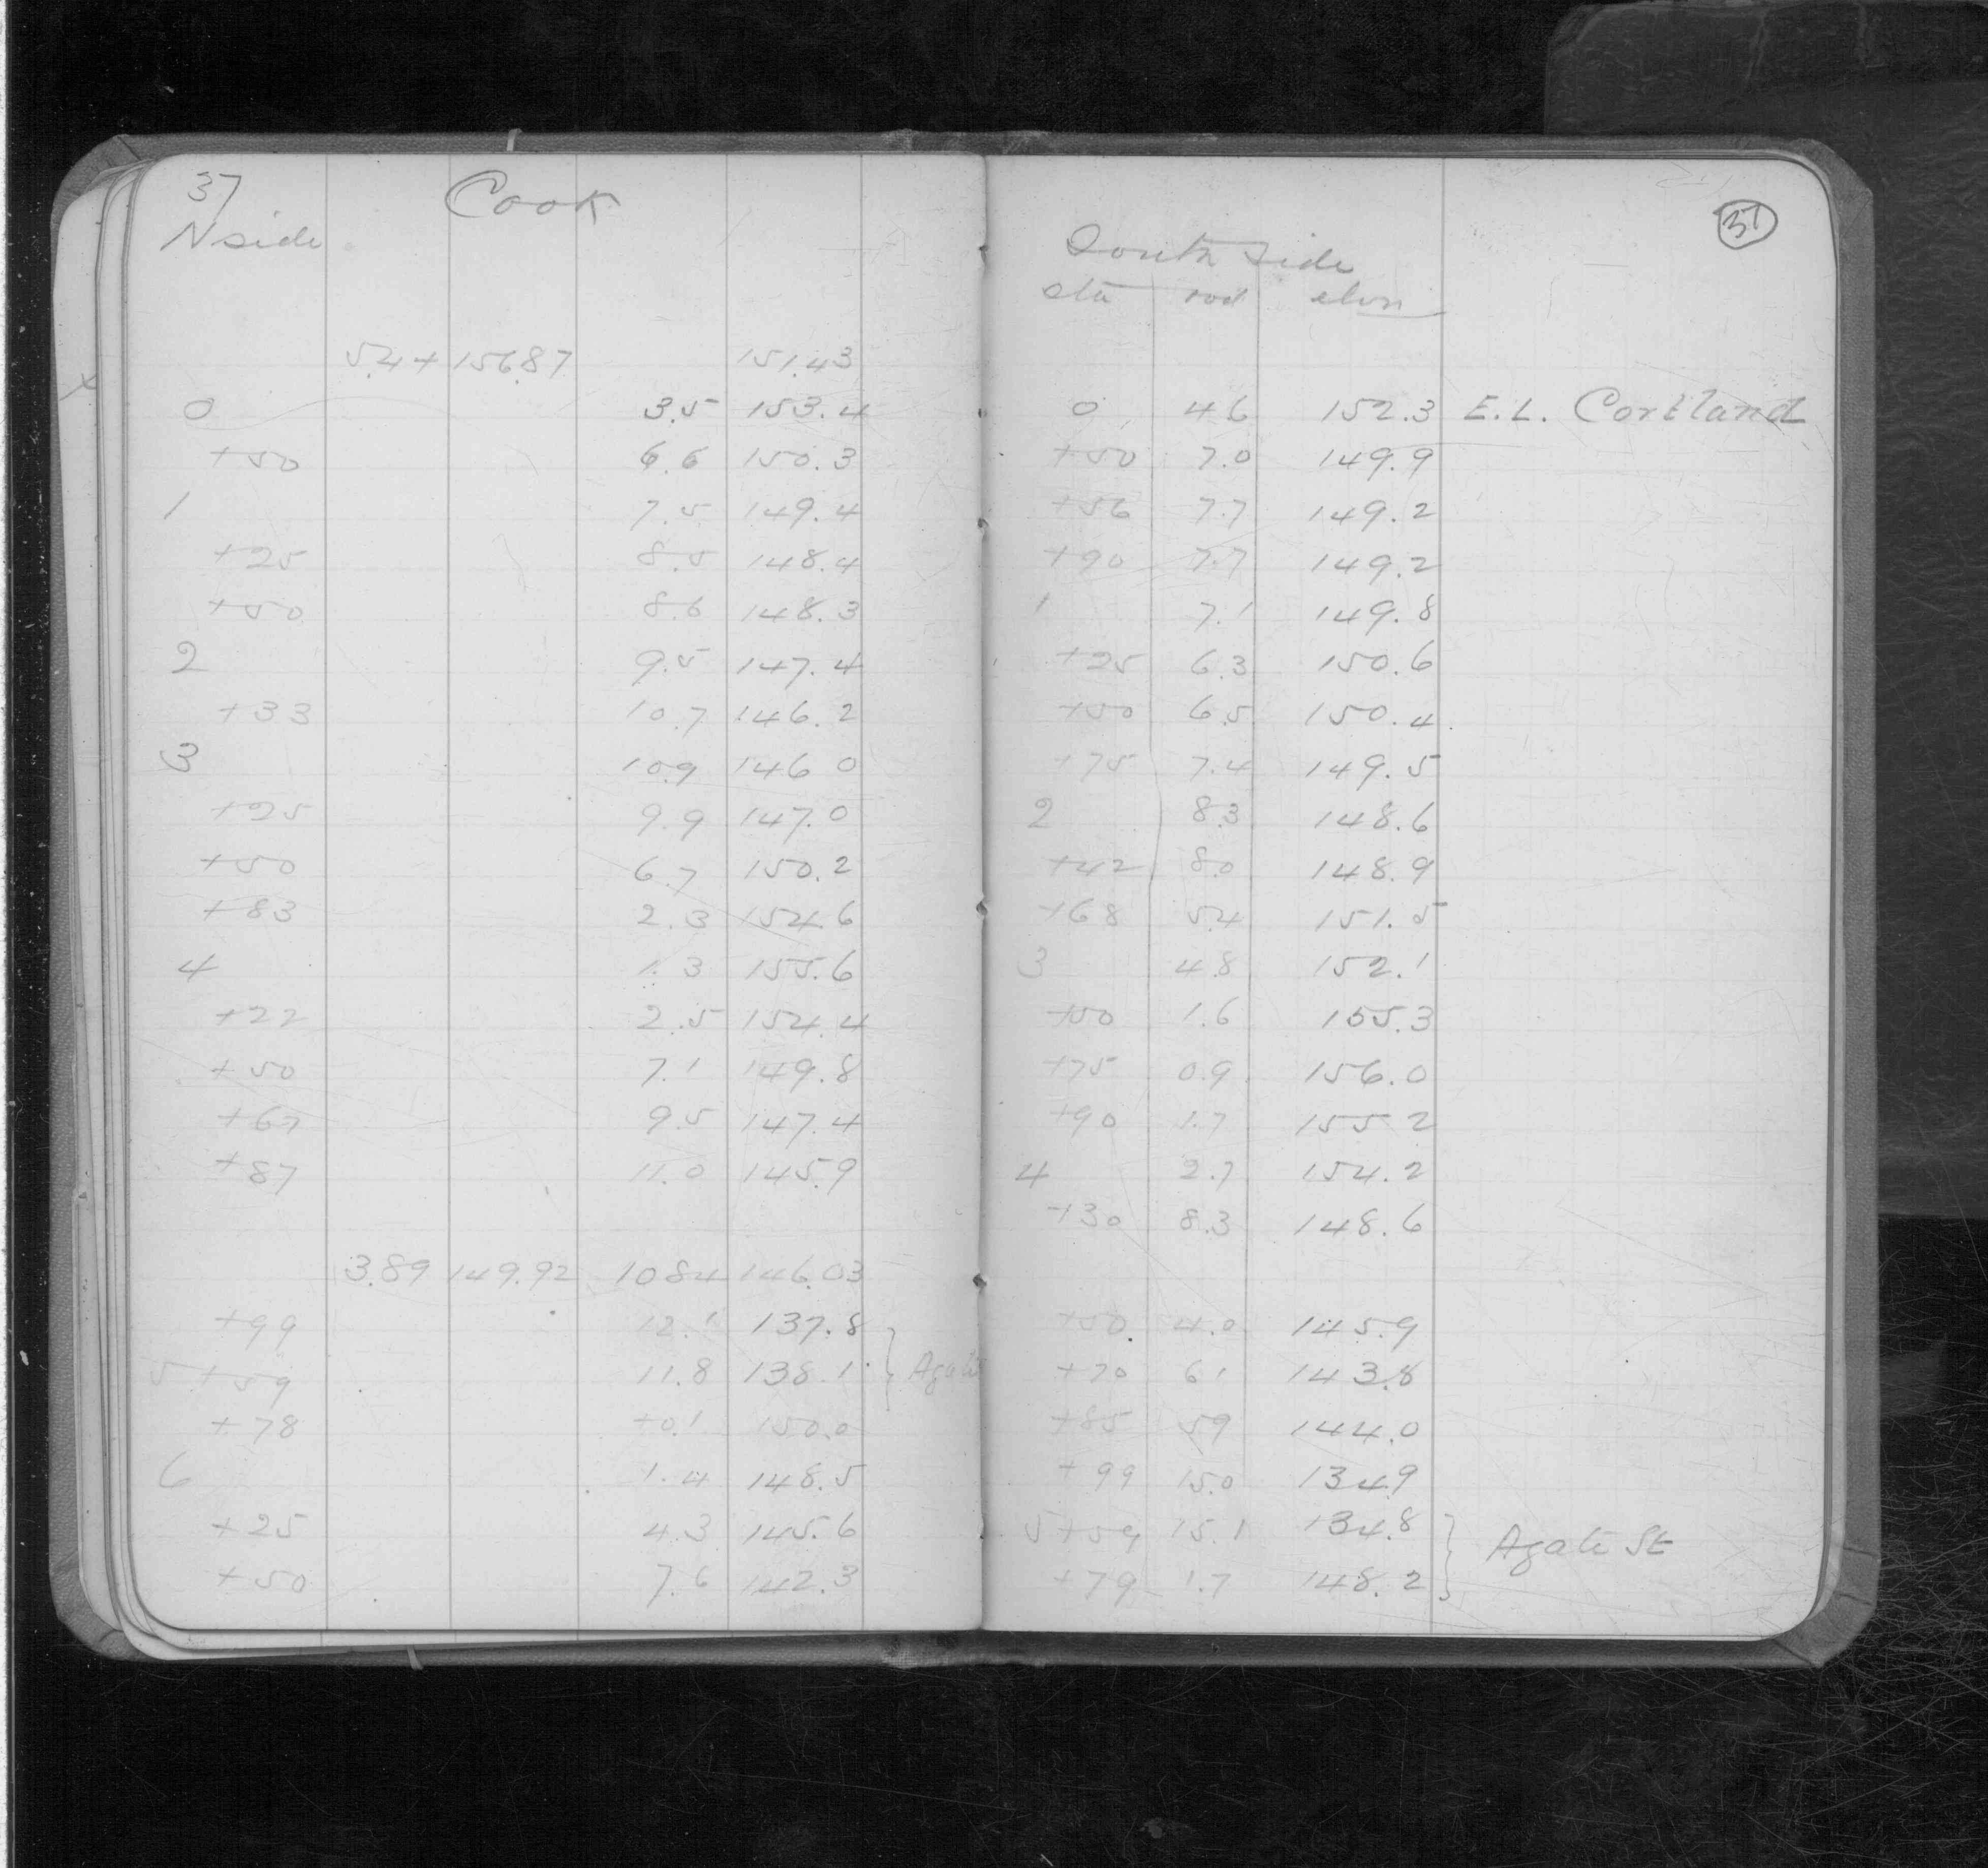 37 Cook
N side
5.4+ 156.87 151.43
0 3.5 153.4
+50 6.6 150.3
1 7.5 149.4
+25 8.5 148.4
+50 8.6 148.3
2 9.5 147.4
+33 10.7 146.2
3 10.9 146 0
+25 9.9 147.0
+50 6.7 150.2
+83 2.3 154.6
4 1.3 155.6
+22 2.5 154.4
+50 7.1 149.8
+67 9.5 147.4
+87 11.0 145.9
3.89 149.92 10 84 146.03
+99 12.1 137.8
5 +59 11.8 138.1 } Agate
+78 +0.1 150.0
6 1.4 148.5
+25 4.3 145.6
+50 7.6 142.3
37
South Side
sta rod elev
0 4 6 152.3 E.L. Cortland
+50 7.0 149.9
+56 7.7 149.2
+90 7.7 149.2
1 7.1 149.8
+25 6.3 150.6
+50 6.5 150.4
+75 7.4 149.5
2 8.3 148.6
+42 8.0 148.9
+68 5.4 151.5
3 4.8 152.1
+50 1.6 155.3
+75 0.9 156.0
+90 1.7 155 2
4 2.7 154.2
+30 8.3 148.6
+50 4.0 145.9
+70 6 1 143.8
+85 5 9 144.0
+99 15.0 134.9
5+59 15.1 134.8
+79 1.7 148.2 } Agate St